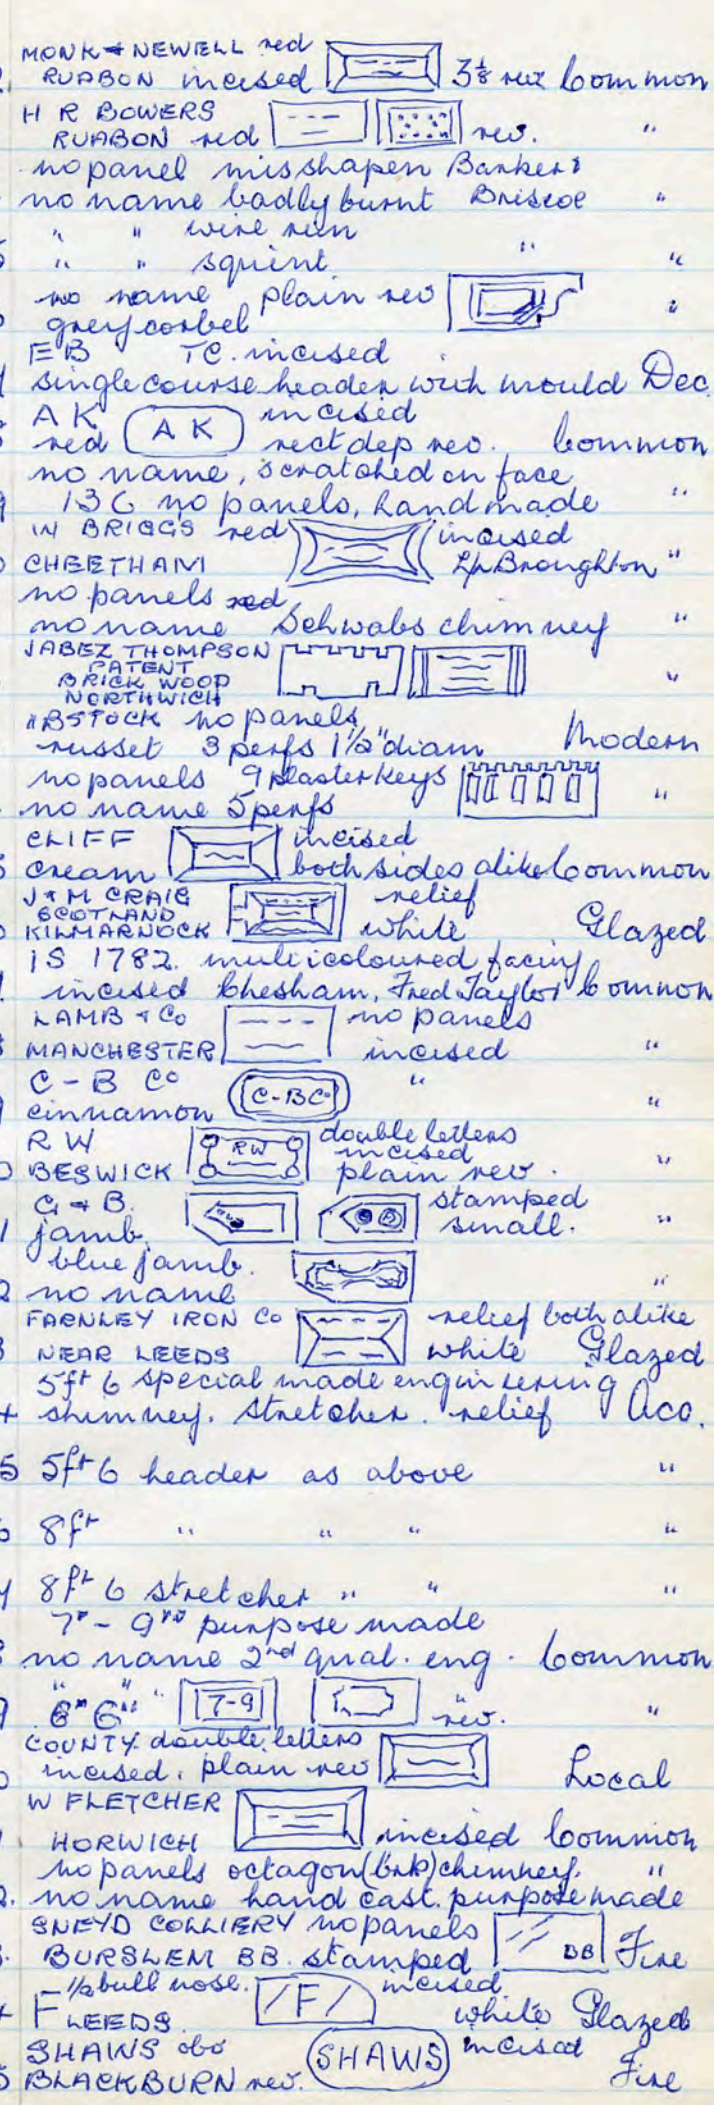 MONK & NEWELL red
RUABON incised 3⅛ rev Common
H R BOWERS
RUABON red rev. "
no panel misshapen Bankers
no name badly burnt Briscoe "
" " wire run
" " squint " "
no name plain rev
grey corbel "
EB TC. incised
single course header with mould Dec.
AK incised
red AK rect dep rev. Common
no name, scratched on face
13C no panels, handmade "
W BRIGGS red incised
CHEETHAM Lr Broughton "
no panels red
no name Schwabs chimney "
JABEZ THOMPSON
PATENT
BRICK WOOD "
NORTHWICH
IBSTOCK no panels
russet 3 perfs 1½" diam Modern
no panels 9 plaster keys
no name 5 perfs "
CLIFF incised
cream both sides alike Common
J & M CRAIG relief
SCOTLAND
KILMARNOCK white Glazed
IS 1782. multicoloured facing
incised Chesham, Fred Taylor Common
LAMB & Co no panels
MANCHESTER incised "
C-B Co "
cinnamon C-B Co "
RW RW double letters
incised
BESWICK plain rev. "
G & B. stamped
jamb. small. "
blue jamb.
no name "
FARNLEY IRON Co relief both alike
NEAR LEEDS white Glazed
5ft 6 special made engineering
chimney. stretcher. relief Acc.
5 5ft 6 header as above "
8ft " " " "
8ft 6 stretcher " " "
7" - 9" purpose made
no name 2nd qual. eng. Common
" " 6" 6" " 7-9 rev. "
COUNTY. double letters
incised. plain rev Local
W FLETCHER
HORWICH incised Common
no panels octagon (brk) chimney. "
no name hand cast. purpose made
SNEYD COLLIERY no panels
BURSLEM BB. stamped BB Fire
½ bull nose. /F/ incised
F LEEDS. white Glazed
SHAWS obv SHAWS incised
BLACKBURN rev. Fire